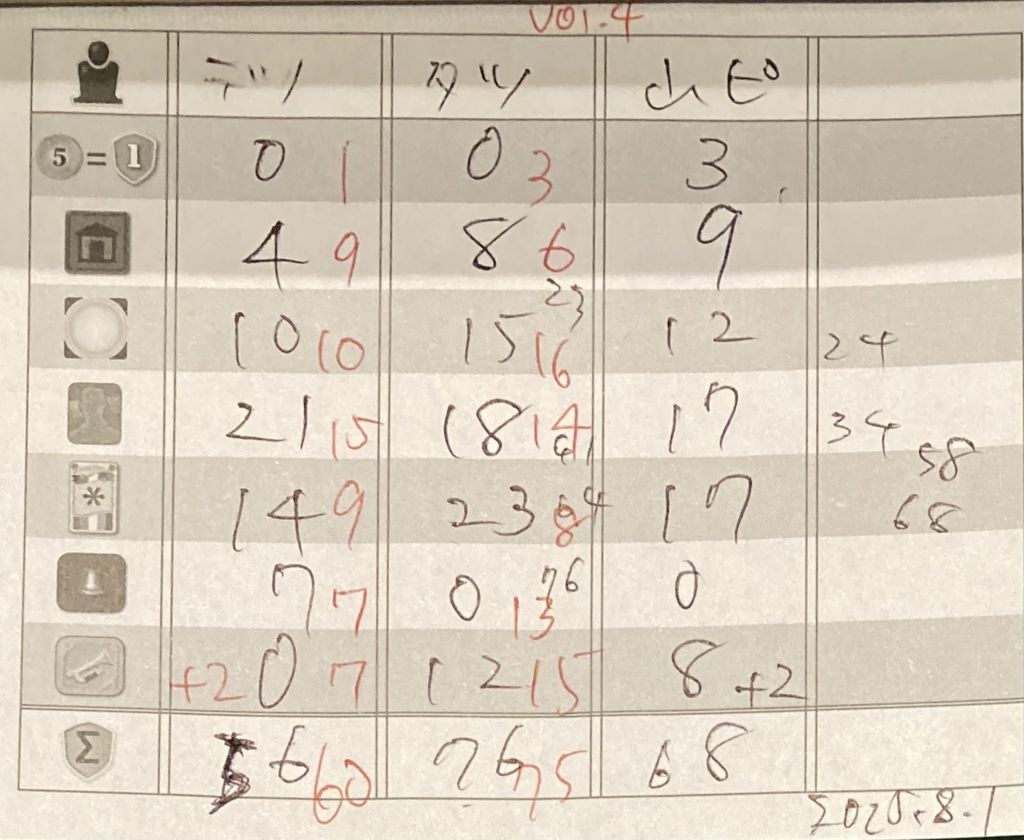 Vol.4
テツ タツ 山ピ
5 = 1 0 1 0 3 3
4 9 8 6 9
23
10 10 15 16 12 24
21 15 18 14 17 34
41 58
14 9 23 8 64 17 68
7 7 0 13 76 0
+2 0 7 12 15 8 +2
Σ 56 60 76 75 68
2025.8.1